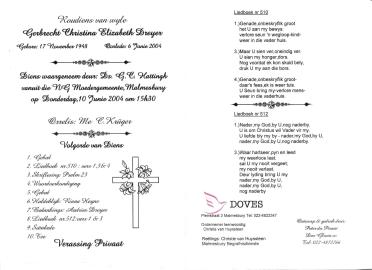 Roudiens van wyle
Gerbrecht Christina Elizabeth Dreyer
Gebore: 17 November 1948 Oorlede: 6 Junie 2004
Diens waargeneem deur: Ds. G.C. Hattingh
vanuit die NG Moedergemeente, Malmesbury
op Donderdag, 10 Junie 2004 om 15h30
Orrelis: Me C. Krüger
Volgorde van Diens
1. Gebed
2. Liedboek nr.510 : vers 1,3&4
3. Skriflesing: Psalm 23
4. Woordverkondiging
5. Gebed
6. Huldeblyk: Nonna Hayne
7. Bedankings: Andries Dreyer
8. Liedboek nr.512:vers 1 & 3
9. Seënbede
10. Toe
Verassing Privaat
Liedboek nr 510
1.)Genade,onbeskryflik groot
het U aan my bewys
verlore seun 'n wegloop-kind-
weer in die vader huis.
3.)Maar U sien ver,oneindig ver.
U sien my honger,dors.
Nog voordat ek kon skuld bely,
druk U my aan die bors.
4.)Genade,onbeskryflik groot-
daar's fees,ek is weer tuis.
U Seun bring my verlore mens-
weer in die Vaderhuis.
Liedboek nr 512
1.)Nader,my God,by U,nog naderby.
U is on Christus wil Vader vir my
U liefde bly my by - nader,my God,by U,
nader,my God,by U,nog naderby.
3.)Waar hartseer,pyn en leed
my meerlose laat,
sal U my nooit vergeet;
my nooit verlaat.
Deur lyding bring U my
nader,my God,by U,
nader,my God,by U,nog naderby.
DOVES
Piketstraat 2 Malmesbury Tel: 022-4823347
Ondernemer teenwoordig
Christie van Huyssteen
Reëlings: Christie van Huyssteen
Malmesbury Begrafnisdienste
Ontwerp & gedruk deur: